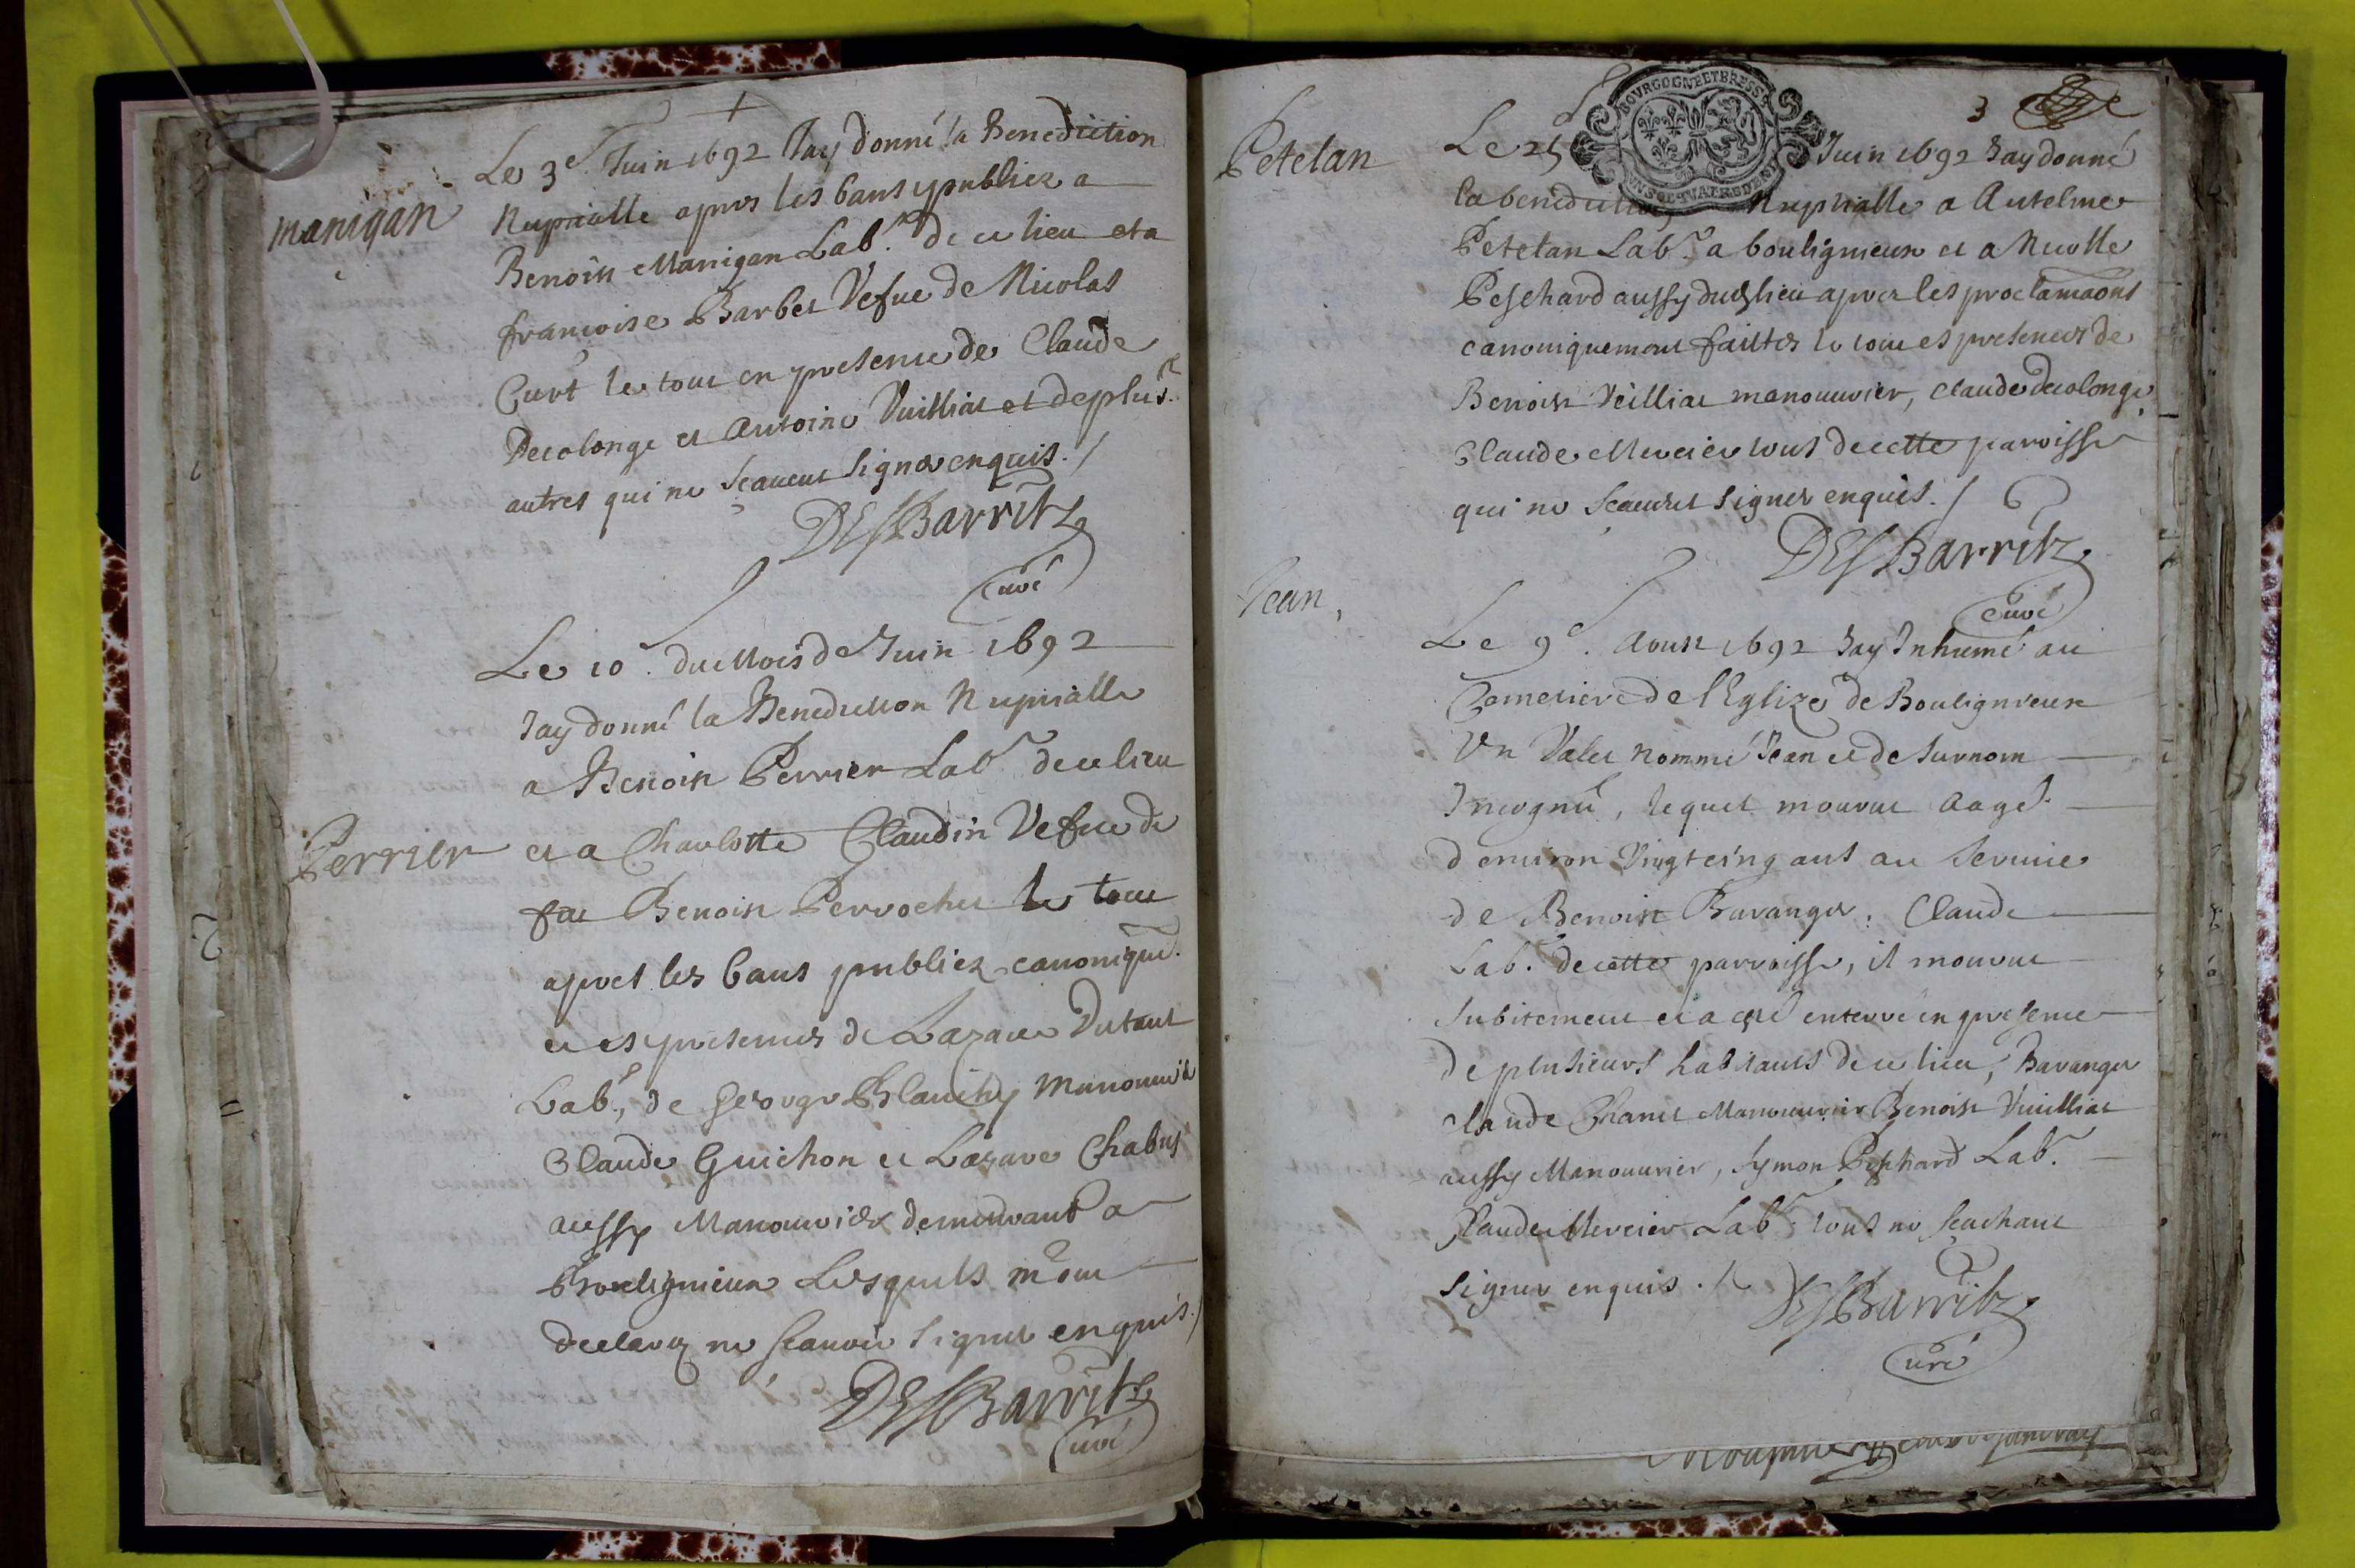 manigan
Le 3e Juin 1692 Jay donné la Benediction
Nuptialle apres les bans publiez a
Benoist Manigan Labr. de ce lieu et a
francoise Barbet Vefue de Nicolas
Curt le tout en presence de Claude
Decolonge et Antoine Vuilliat et de plusrs.
autres qui ne scauent signer enquis./
DESBarritz
Curé
Le 10e du Mois de Juin 1692
Jay donné la Benediction Nuptialle
a Benoist Perrier Labr de ce lieu
Perrier
et a Charlotte Claudin Vefue de
feu Benoist Perrochet le tout
apres les bans publiez canoniqut.
et es presences de Lazare Dutant
Labr, de George Blanchy Manouurier
Claude Guichon et Lazare Chabus
aussy Manouurier demeurant a
Boulignieux Lesquels m'ont
declaré ne scauoir signer enquis./
DESBarritz
Curé
BOVRGOGNE ET BRESSE
3
Petetan
Le 25 Juin 1692 Jay donné
la benediction Nuptialle a Antelme
Petetan Labr. a boulignieux et a Nicolle
Peschard aussy dud lieu apres les proclamaons
canoniquement faittes le tout es presences de
Benoist Veilliat manouurier, Claude decolonge
Claude Mercier tous de cette paroisse
qui ne scauent signer enquis./
DESBarritz
Curé
Jean,
Le 9e. Aoust 1692 Jay Inhumé au
Cemetiere de l'Eglize de Boulignieux
Vn Valet nommé Jean et de surnom
Incognu, lequel mourut aagé
d'enuiron Vingtcinq ans au seruice
de Benoist Baranger. Claude
Labr. de cette parroisse, il mourut
subitement et a esté enterré en presence
de plusieurs habitants de ce lieu, Baranger
Claude Chanel Manouurier Benoist Vuilliat
aussy Manouurier, Symon Peschard Labr.
Claude Mercier Labr tous ne scachant
signer enquis./.
DESBarritz
Curé